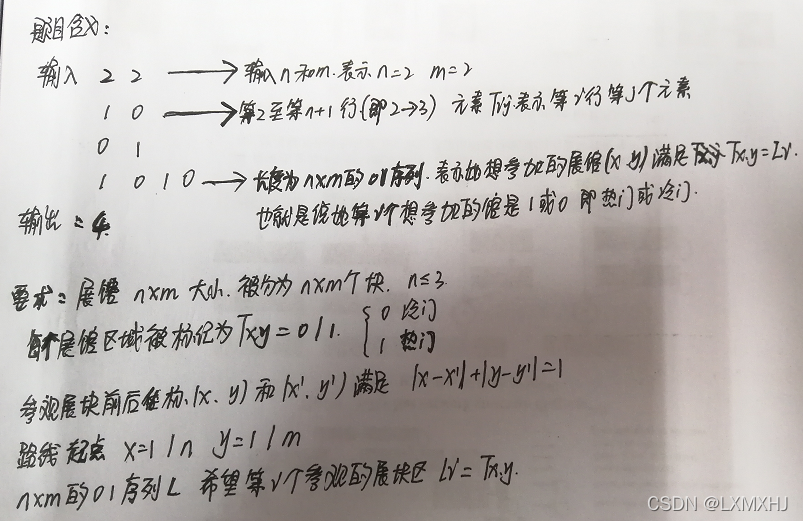 题目含义:
输入 2 2 → 输入n和m.表示n=2 m=2
1 0 → 第2至第n+1行(即2→3) 元素Tij表示第i行第j个元素
0 1
1 0 1 0 → 长度为n×m的01序列.表示她想参加的展馆(x,y)满足 Tx,y=Li.
也就是说她第i个想参加的馆是1或0 即热门或冷门.
输出:4
要求:展馆 n×m 大小.被分为n×m个块. n≤3.
每个展馆区域被标记为Txy=0/1. { 0 冷门
1 热门
参观展块前后坐标(x,y)和(x',y')满足 |x-x'|+|y-y'|=1
路线起点 x=1/n y=1/m
n×m的01序列L 希望第i个参观的展块区 Li=Tx,y.
CSDN @LXMXHJ